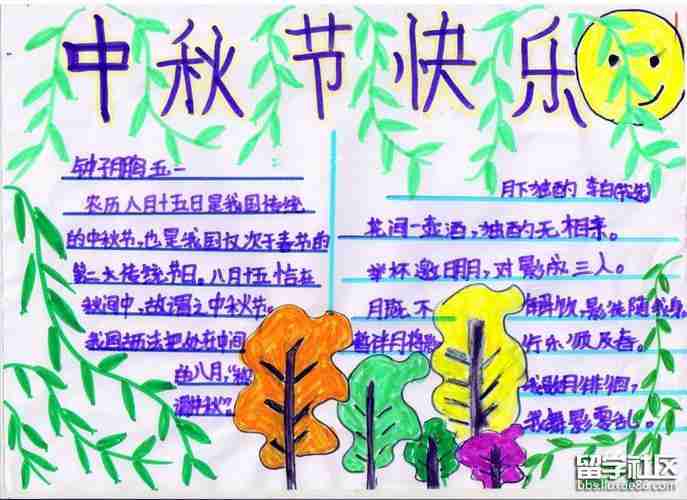 中秋节快乐
五一
农历八月十五日是我国传统
的中秋节,也是我国仅次于春节的
第二大传统节日。八月十五恰在
秋间中,故谓之中秋节。
我国古历法把处在中间
的八月,"秋
谓中秋"。
月下独酌 李白(节选)
花间一壶酒,独酌无相亲。
举杯邀明月,对影成三人。
月既不 解饮,影徒随我身。
暂伴月将影 行乐须及春。
我歌月徘徊,
我舞影零乱。
留学社区
bbs.liuxue86.com